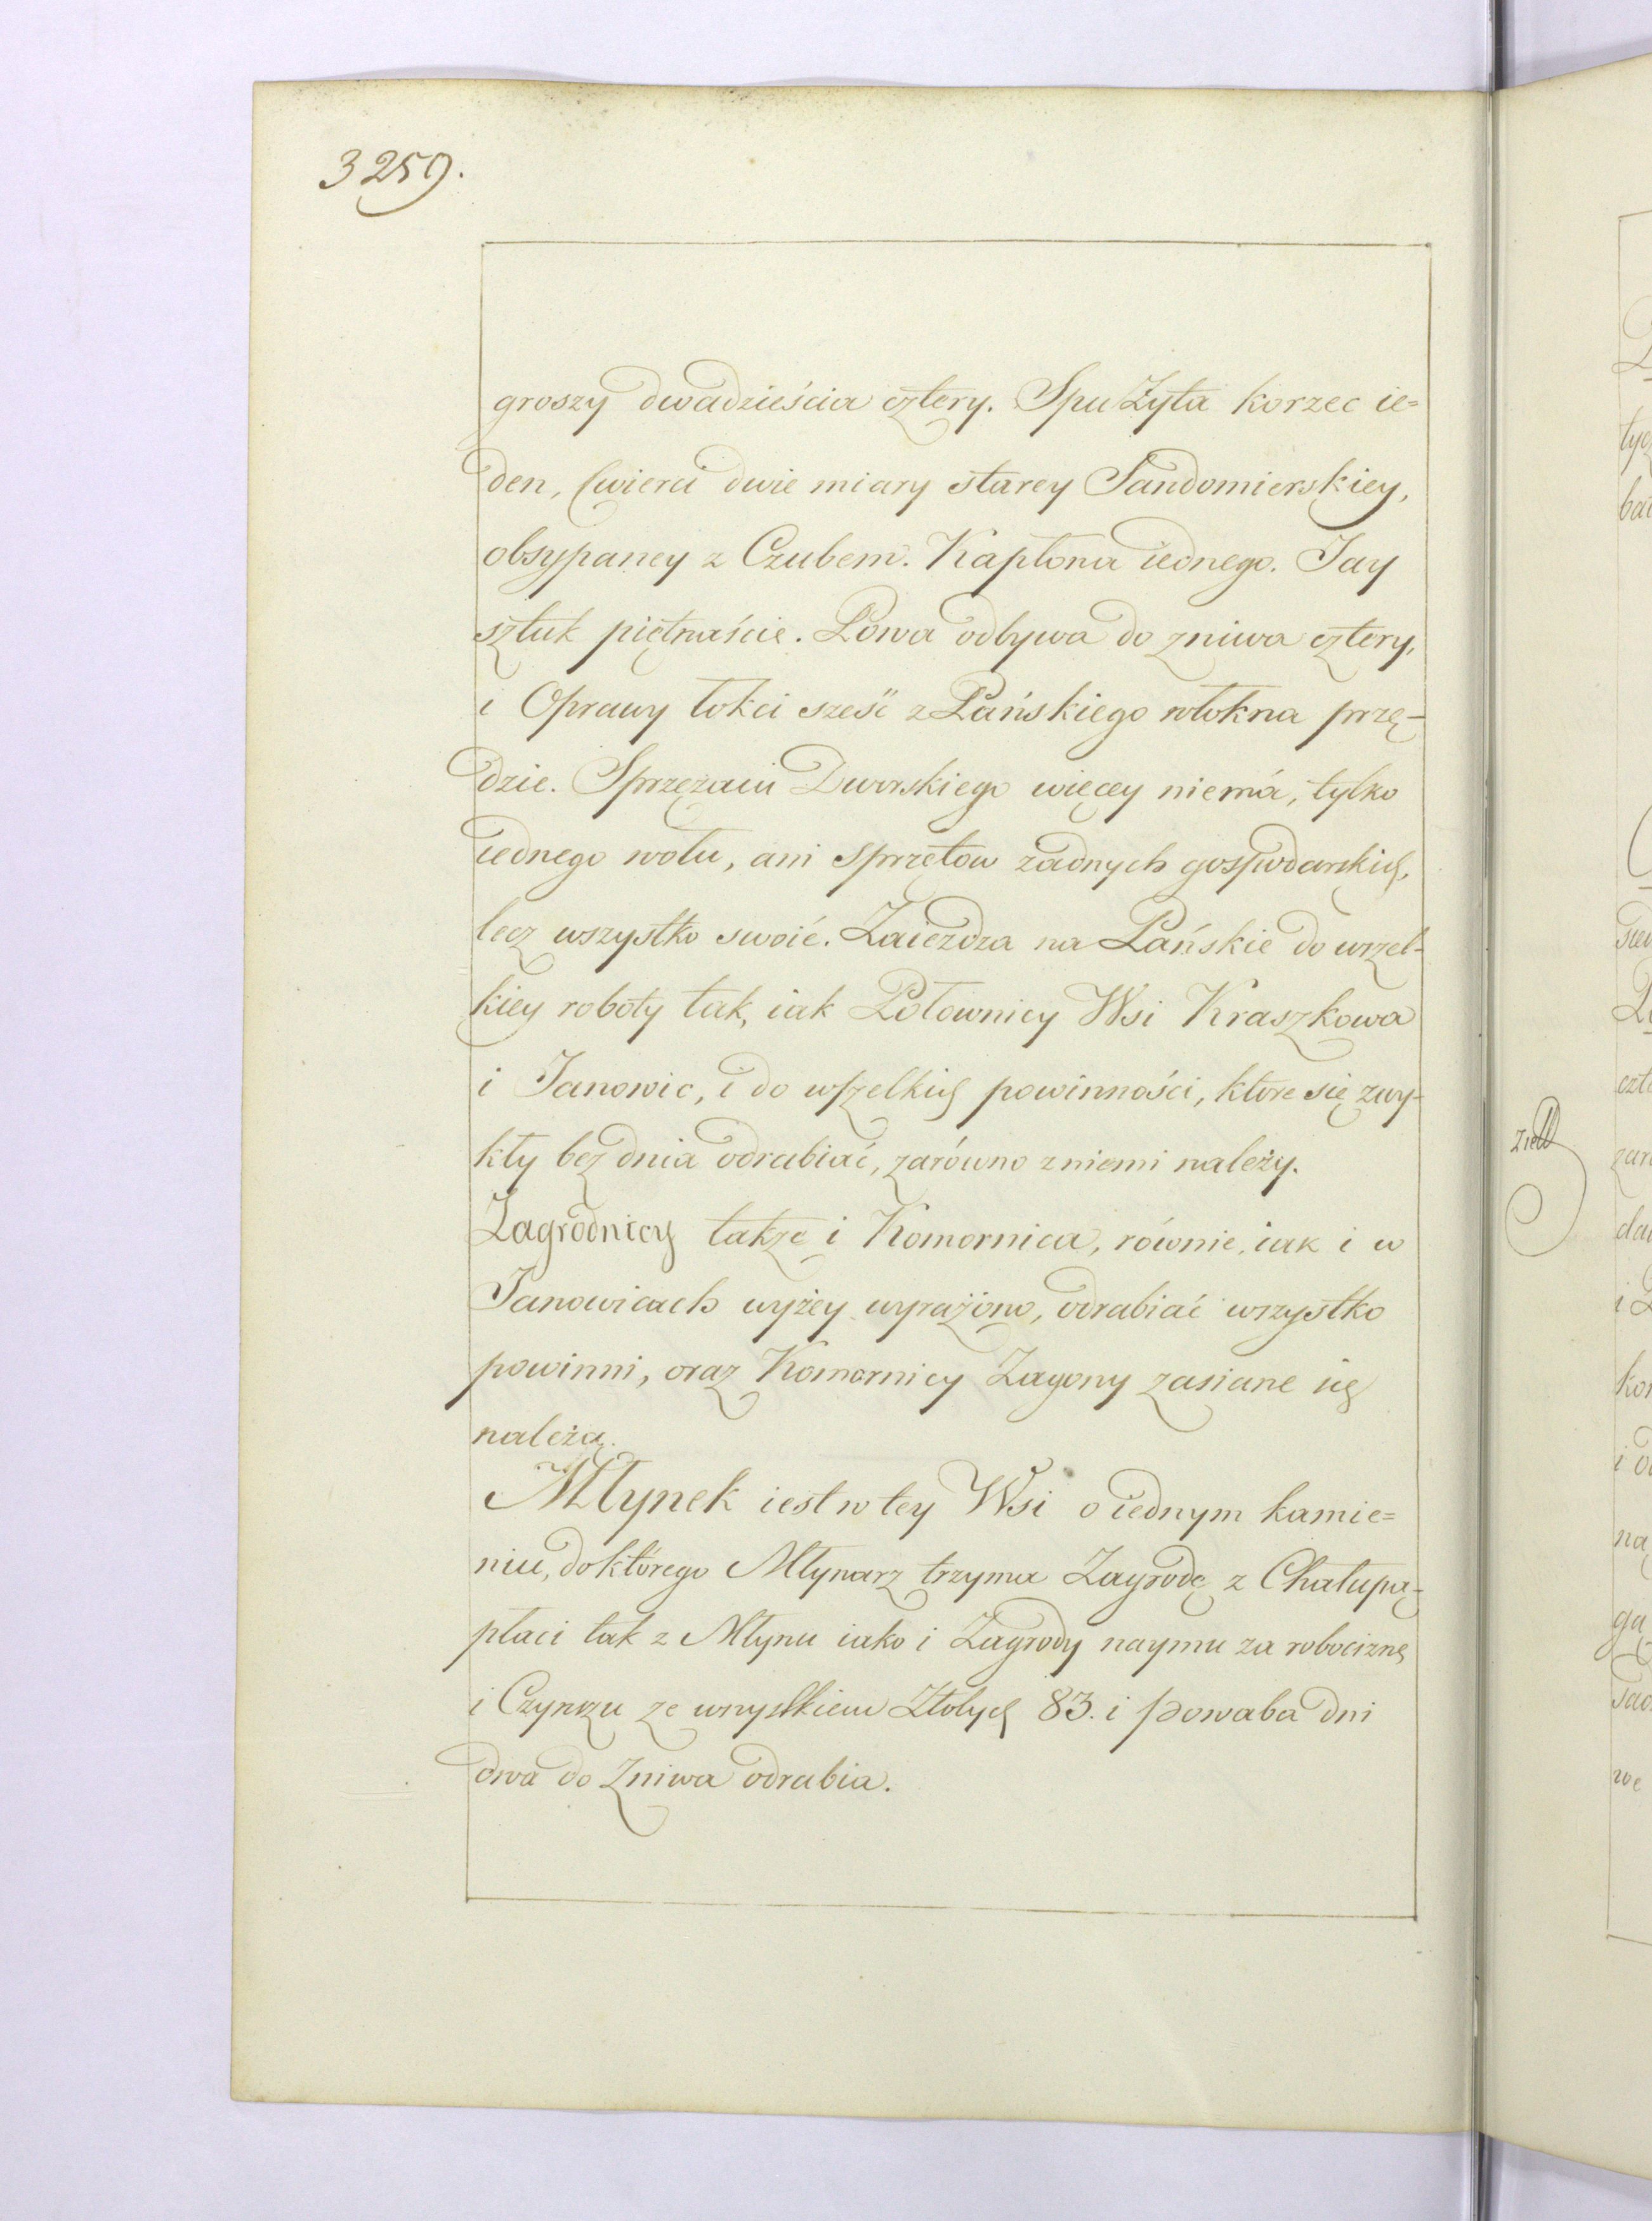 3259.
groszy dwadzieścia cztery. Spu Żyta korzec ie=
den, Cwierci dwie miary starey Sandomierskiey,
obsypaney z Czubem. Kapłona iednego. Jay
sztuk piętnaście. Powa odbywa do zniwa cztery,
i Oprawy łokci sześć z Pańskiego włokna przę-
dzie. Sprzężaiu Dworskiego więcey niemá, tylko
iednego wołu, ani sprzętow żadnych gospodarskich,
lecz wszystko swoié. Zaieżdza na Pańskie do wszel-
kiey roboty tak, iak Połownicy Wsi Kraszkowa
i Janowic, i do wszelkich powinności, ktore się zwy-
kły bez dnia odrabiać, zarówno z niemi należy.
Zagrodnicy także i Komornica, równie, iak i w
Janowicach wyżey wyrażono, odrabiać wszystko
powinni, oraz Komornicy Zagony zasiane ich
należą.
Młynek iest w tey Wsi o iednym kamie=
niu, do którego Młynarz trzyma Zagrodę z Chałupą
płaci tak z Młynu iako i Zagrody naymu za robociznę
i Czynszu ze wszystkiem Złotych 83. i powaba dni
dwa do Zniwa odrabia.